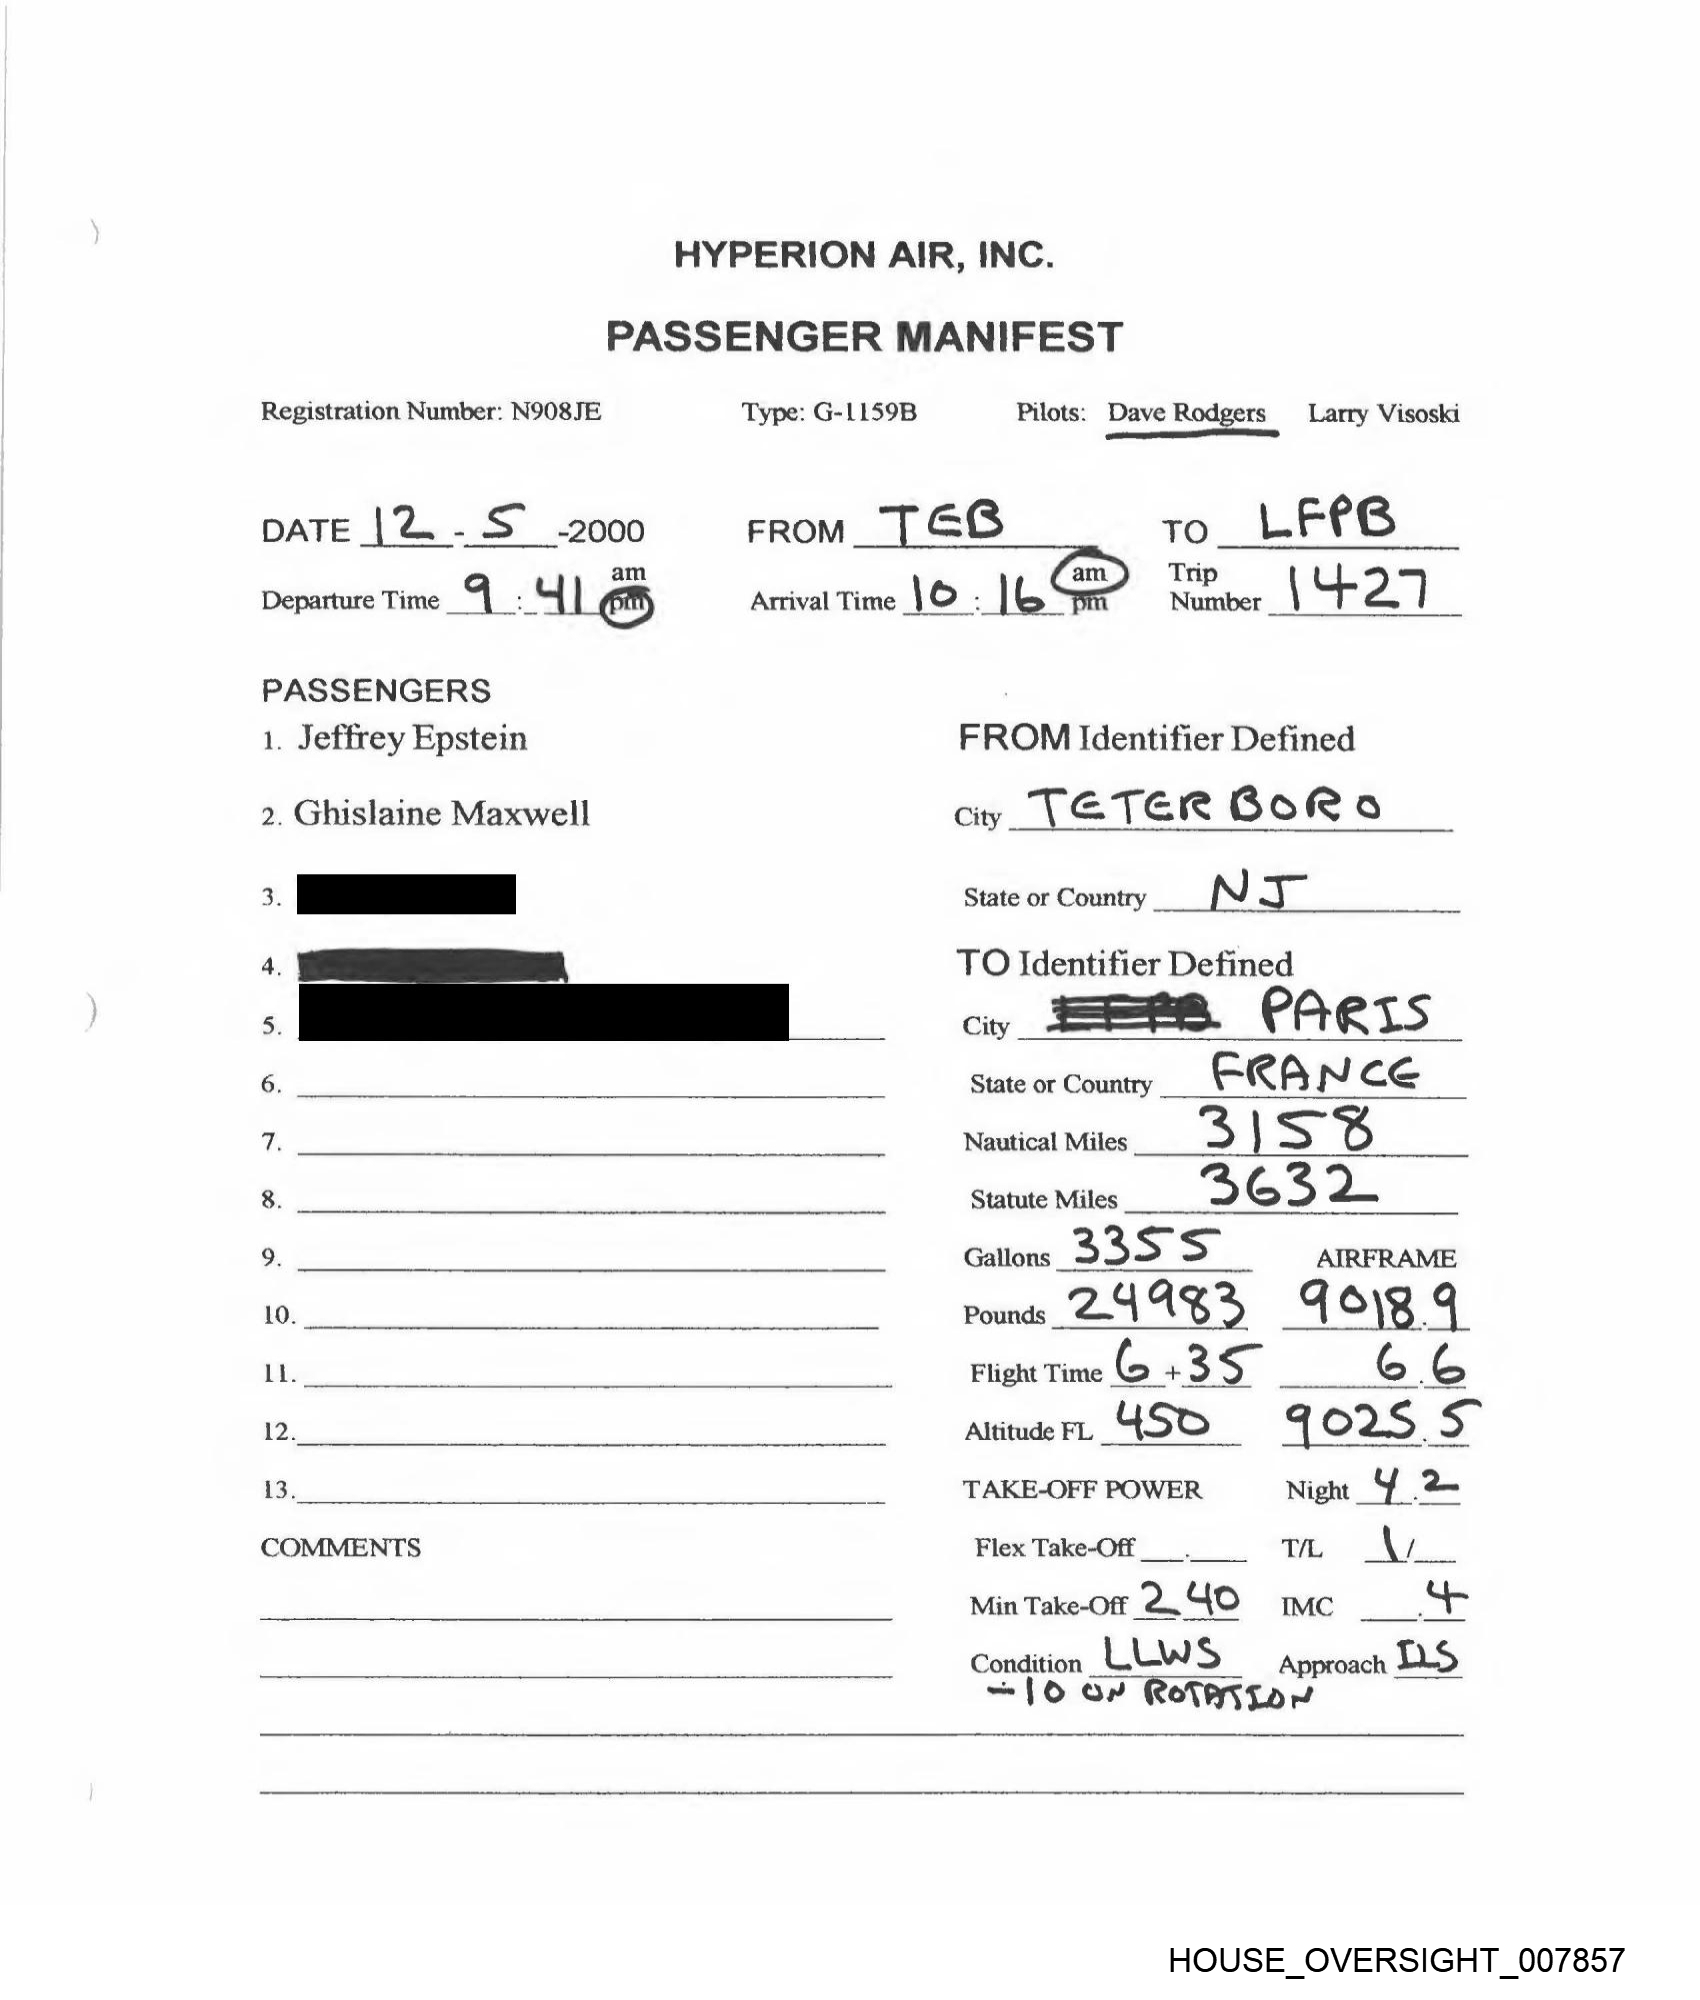 HYPERION AIR, INC.
PASSENGER MANIFEST
Registration Number: N908JE Type: G-1159B Pilots: Dave Rodgers Larry Visoski
DATE 12 - 5 -2000 FROM TEB TO LFPB
Departure Time 9 : 41 am pm Arrival Time 10 : 16 am pm Trip Number 1427
PASSENGERS
1. Jeffrey Epstein
2. Ghislaine Maxwell
3.
4.
5.
6.
7.
8.
9.
10.
11.
12.
13.
COMMENTS
FROM Identifier Defined
City TETERBORO
State or Country NJ
TO Identifier Defined
City PARIS
State or Country FRANCE
Nautical Miles 3158
Statute Miles 3632
Gallons 3355 AIRFRAME
Pounds 24983 9018.9
Flight Time 6 + 35 6.6
Altitude FL 450 9025.5
TAKE-OFF POWER Night 4.2
Flex Take-Off . T/L 1/
Min Take-Off 2.40 IMC .4
Condition LLWS Approach ILS
-10 ON ROTATION
HOUSE_OVERSIGHT_007857